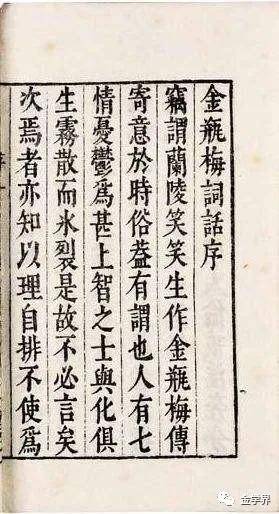 金瓶梅詞話序
竊謂蘭陵笑笑生作金瓶梅傳
寄意於時俗葢有謂也人有七
情憂鬱爲甚上智之士與化俱
生霧散而氷裂是故不必言矣
次焉者亦知以理自排不使爲
金学界